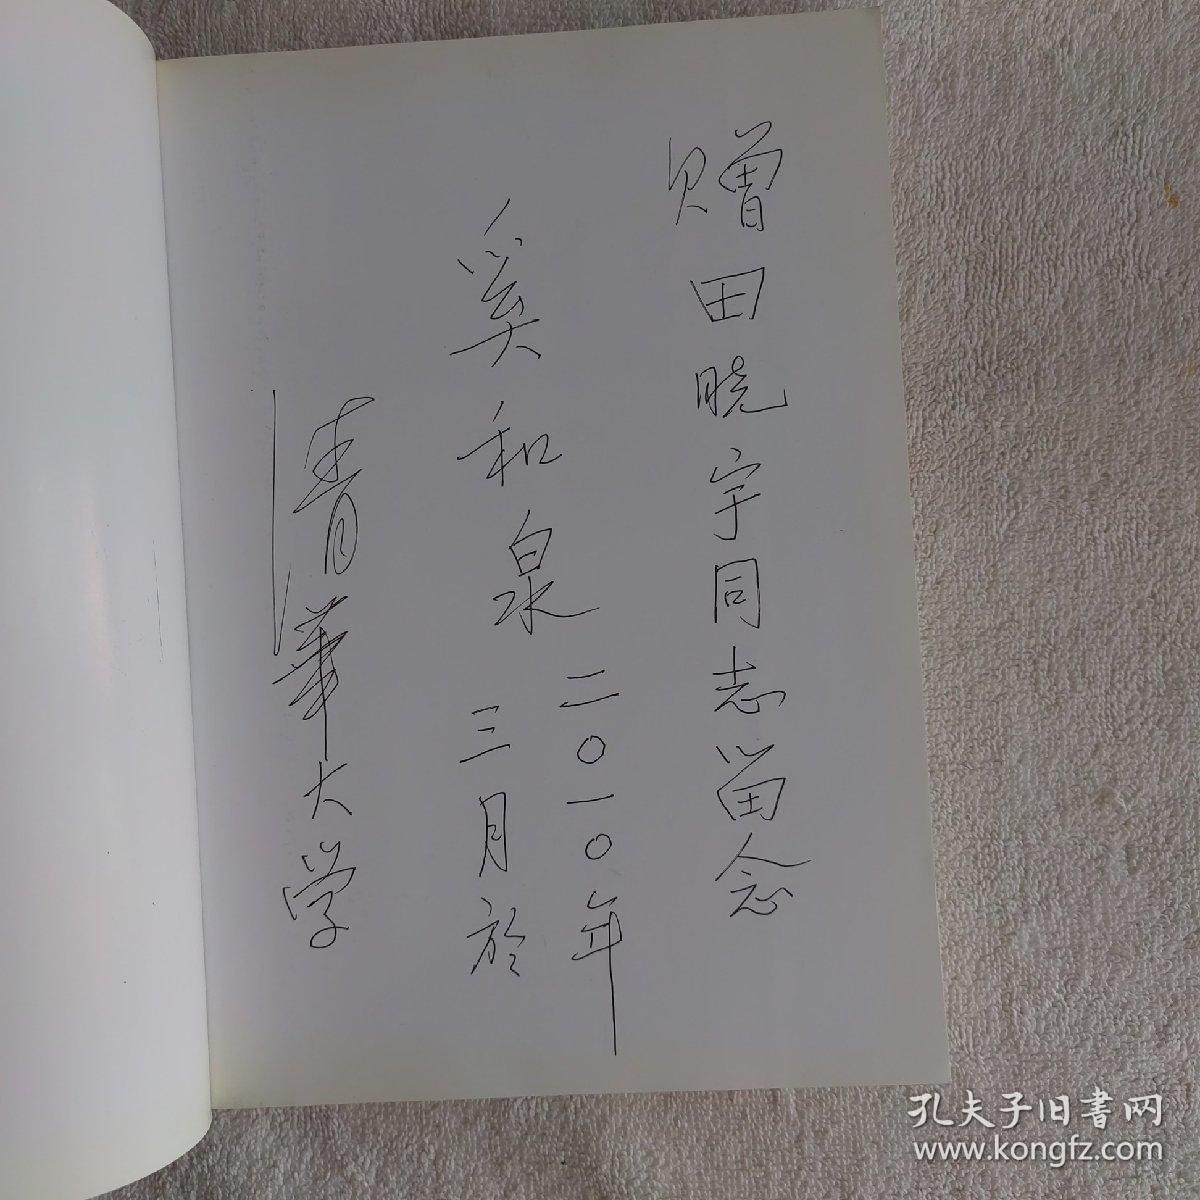 赠田晓宇同志留念
奚和泉
二〇一〇年
三月於
清華大学
孔夫子旧書网
www.kongfz.com